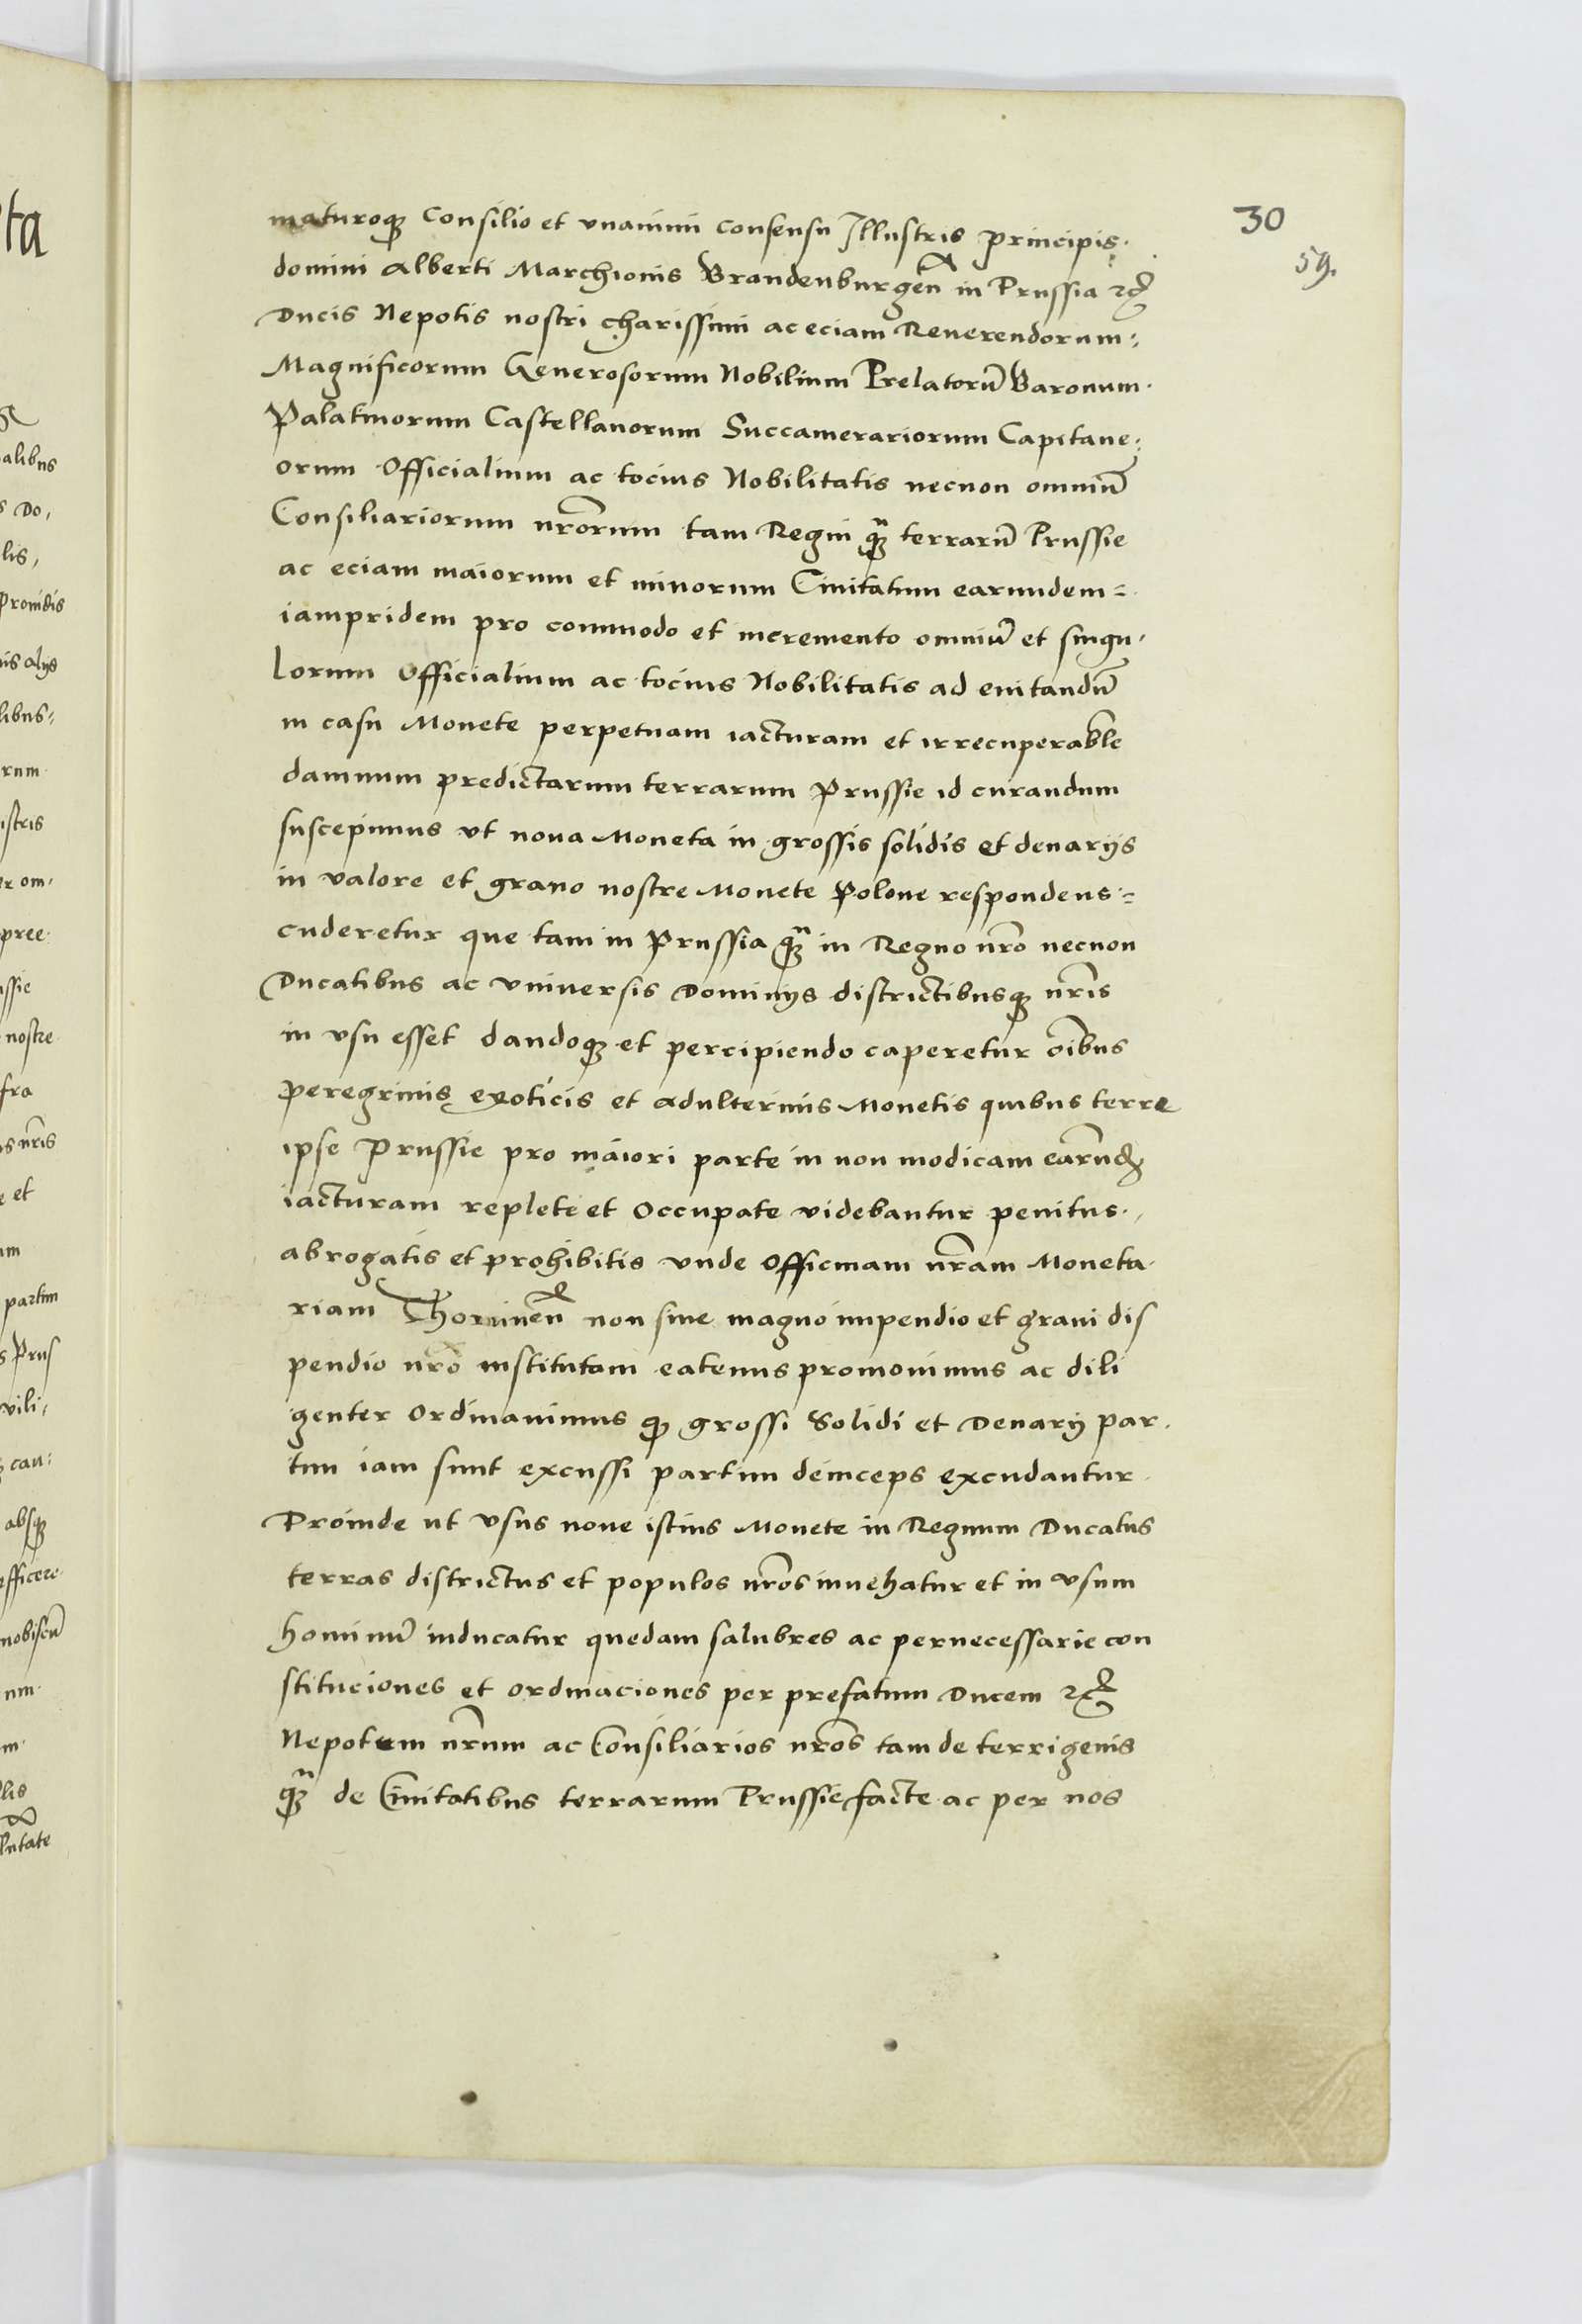 30
59.
maturoqꝫ Consilio et vnanimi consensu Illustris principis.
domini Alberti Marchionis Brandenburgeñ in Prussia ꝛc̃
Ducis Nepotis nostri charissimi ac eciam Reuerendorum:,
Magnificorum Generosorum Nobilium Prelatorũ Baronum.
Palatinorum Castellanorum Succamerariorum Capitane:
orum Officialium ac tocius Nobilitatis necnon omniũ
Consiliariorum nrõrum tam Regni qꝫ̃ terrarũ Prussie
ac eciam maiorum et minorum Ciuitatum earundem=
iampridem pro commodo et incremento omniũ et singu,
lorum Officialium ac tocius Nobilitatis ad euitandũ
in casu Monete perpetuam iacturam et irrecuperablẽ
damnum predictarum terrarum Prussie id curandum
suscepimus vt noua Moneta in grossis solidis et denarijs
in valore et grano nostre Monete Polone respondens.=
cuderetur que tam in Prussia qꝫ̃ in Regno nrõ necnon
Ducatibus ac vniuersis Dominijs districtibusqꝫ nrĩs
in vsu esset dandoqꝫ et percipiendo caperetur oĩbus
peregrinis exoticis et adulterinis Monetis quibus terre
ipse Prussie pro maiori parte in non modicam earũdẽ
iacturam replete et Occupate videbantur penitus.,
abrogatis et prohibitis vnde Officinam nrãm Moneta.
riam Thoruneñ non sine magno impendio et graui dis
pendio nrõ institutam eatenus promouimus ac dili
genter Ordinauimus qꝫ grossi Solidi et Denarij par.
tim iam sunt excussi partim deinceps excudantur.
Proinde ut vsus noue istius Monete in Regnum Ducatus
terras districtus et populos nrõs inuehatur et in vsum
hominũ inducatur quedam salubres ac pernecessarie con
stituciones et ordinaciones per prefatum Ducem ꝛc̃
Nepotem nrũm ac Consiliarios nrõs tam de terrigenis
qꝫ̃ de Ciuitatibus terrarum Prussie facte ac per nos